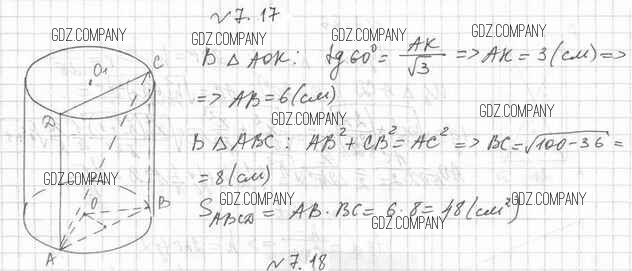 №7.17
GDZ.COMPANY GDZ.COMPANY GDZ.COMPANY GDZ.COMPANY
В △ AOK: tg60° = AK/√3 => AK = 3 (см) =>
=> AB = 6 (см)
GDZ.COMPANY GDZ.COMPANY
В △ ABC: AB² + CB² = AC² => BC = √100-36 =
= 8 (см)
GDZ.COMPANY GDZ.COMPANY GDZ.COMPANY GDZ.COMPANY
S ABCD = AB · BC = 6 · 8 = 48 (см²)
№7.18
O₁
C
D
O
B
A